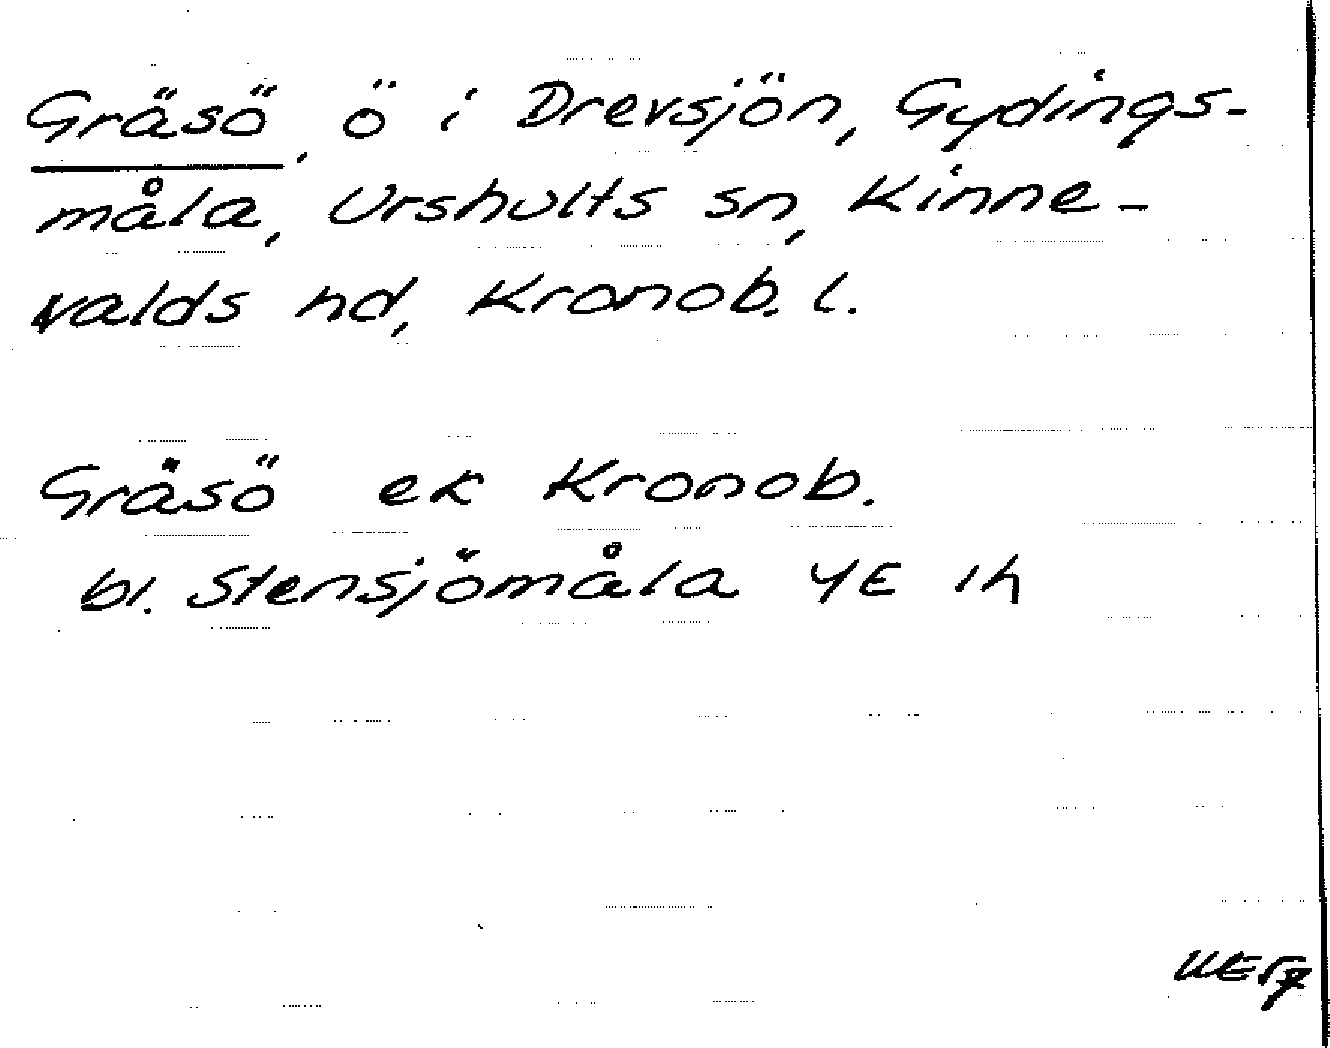 Gräsö, ö i Drevsjön, Gydings-
måla, Urshults sn, Kinne-
valds hd, Kronob. l.
Gräsö ek Kronob.
bl. Stensjömåla 4E 1h